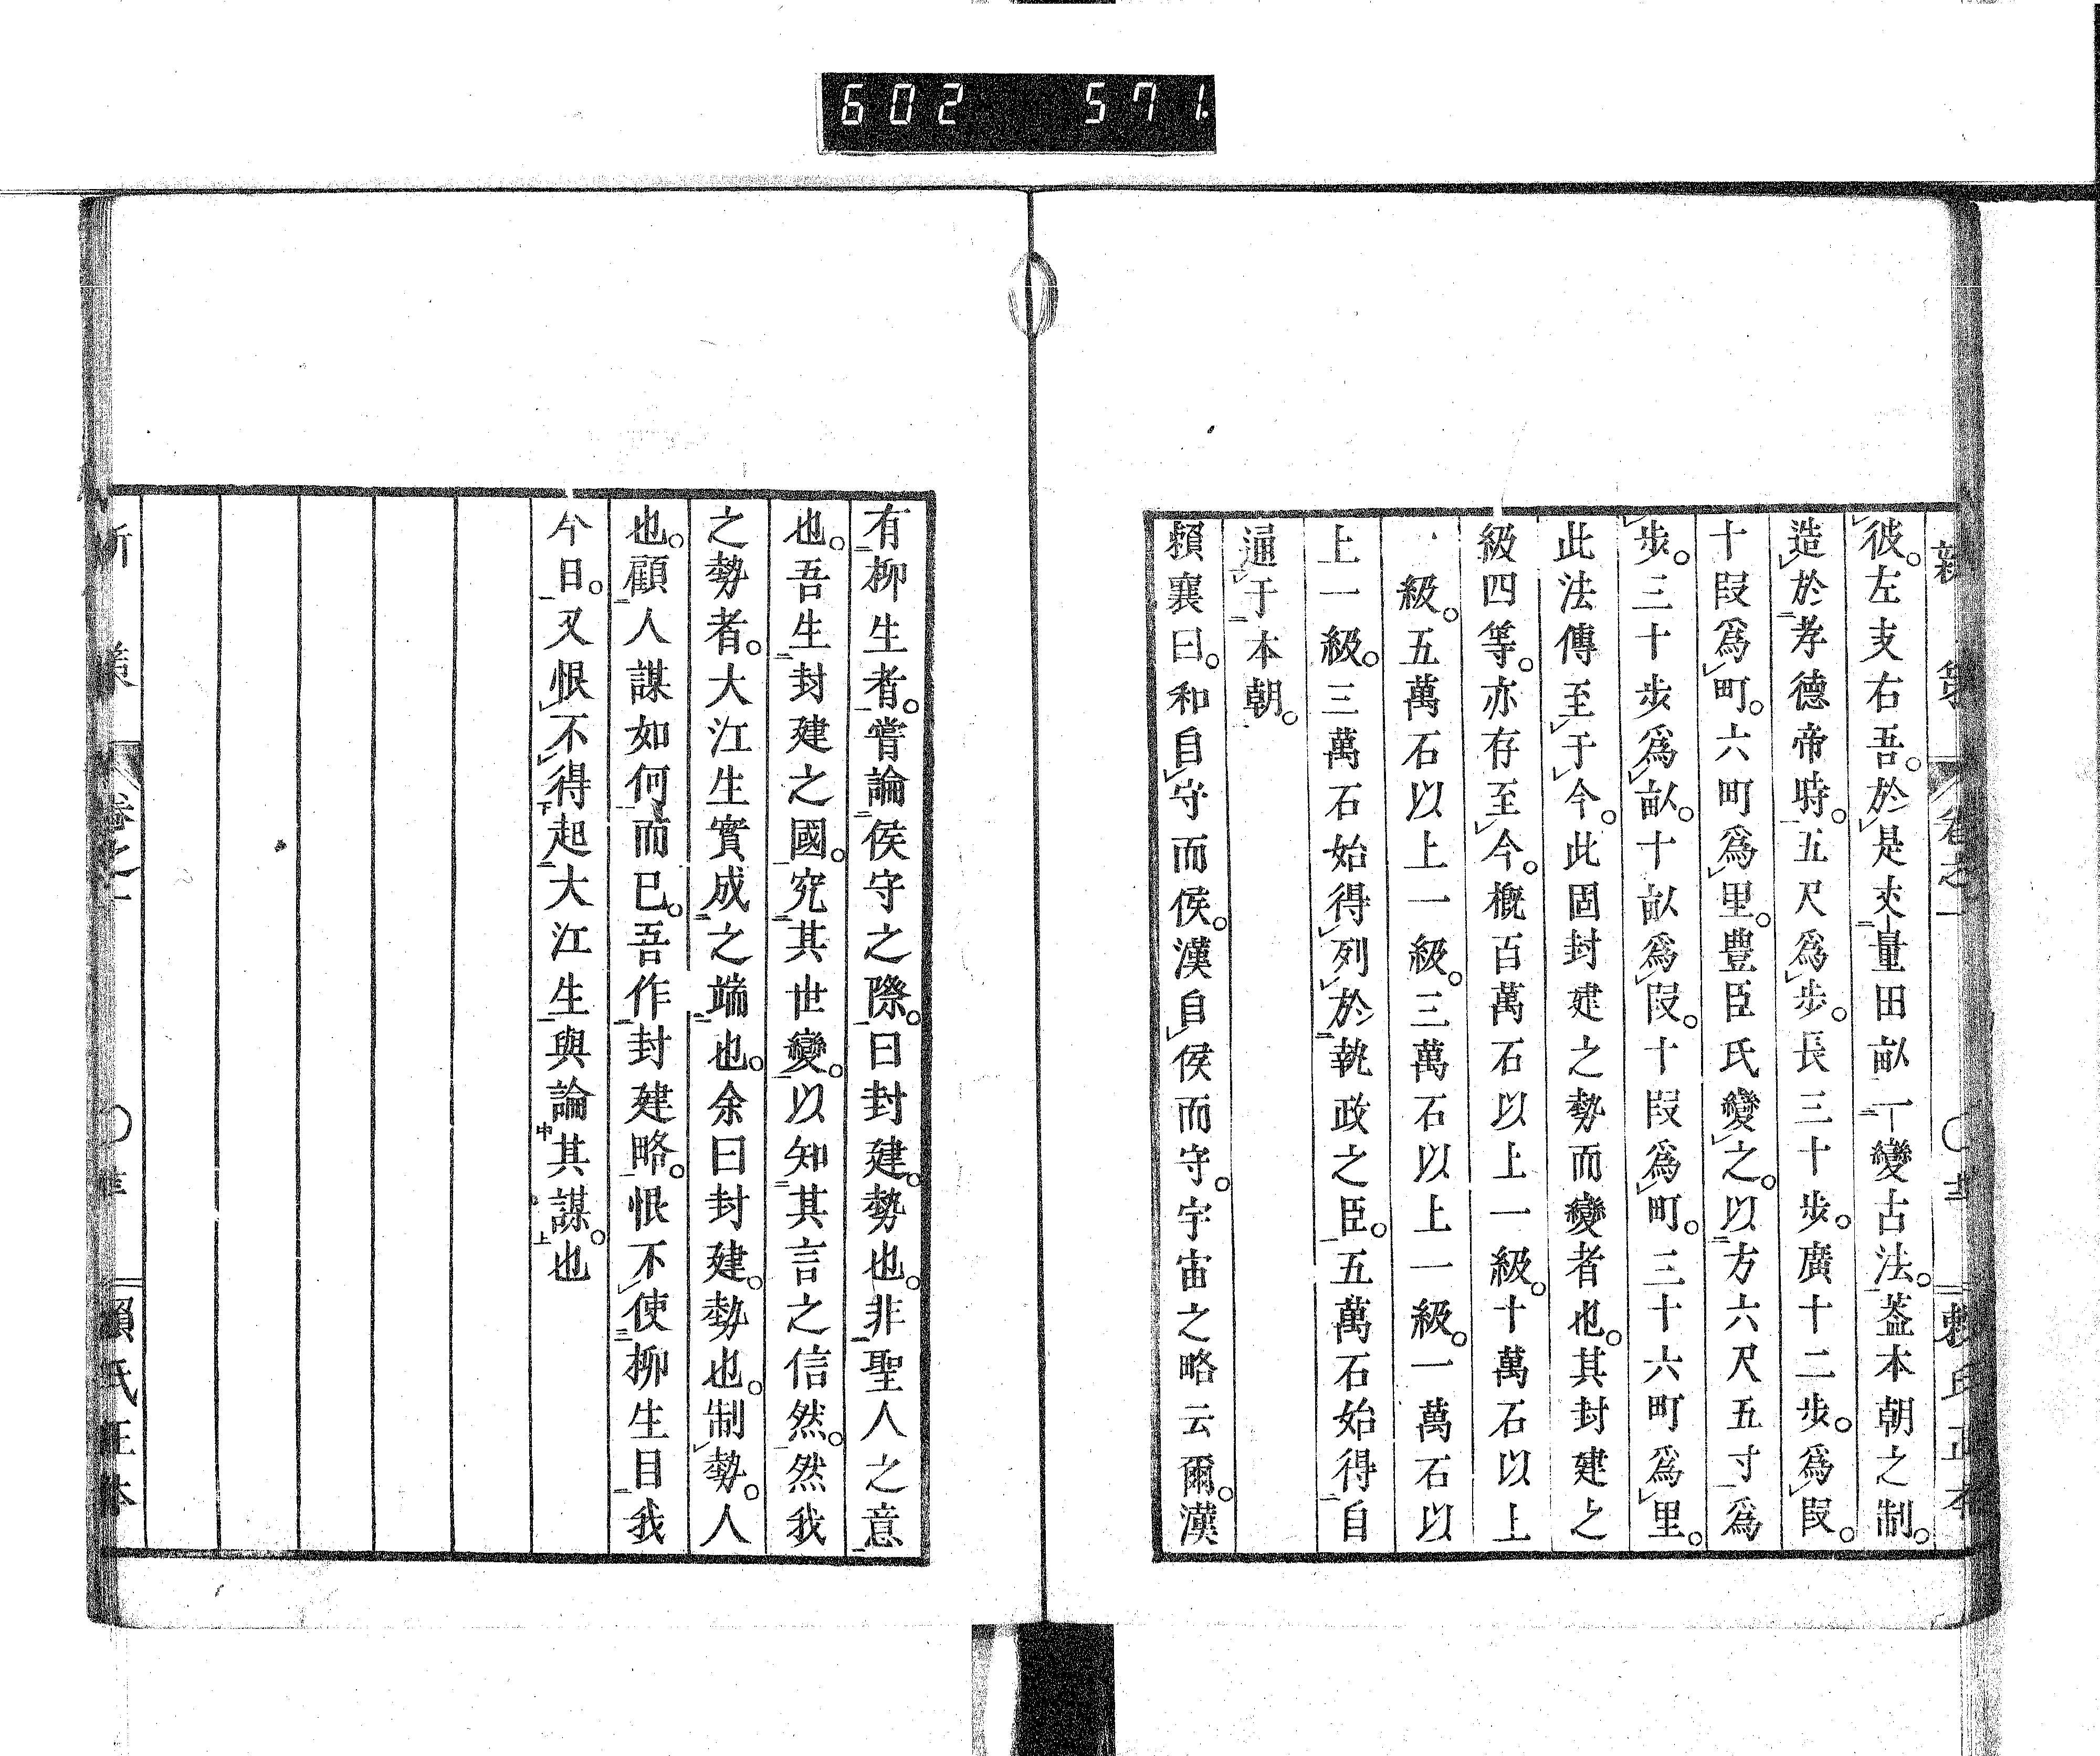 602 571
新策 卷之一 〇 賴氏正本
彼。左支右吾。於是丈量田畝一變古法。葢本朝之制。
造於孝德帝時。五尺爲步。長三十步。廣十二步。爲段。
十段爲町。六町爲里。豐臣氏變之。以方六尺五寸爲
步。三十步爲畝。十畝爲段。十段爲町。三十六町爲里。
此法傳至于今。此固封建之勢而變者也。其封建之
級四等。亦存至今。概百萬石以上一級。十萬石以上
級。五萬石以上一級。三萬石以上一級。一萬石以
上一級。三萬石始得列於執政之臣。五萬石始得自
通于本朝。
賴襄曰。和自守而侯。漢自侯而守。宇宙之略云爾。漢
有柳生者。嘗論侯守之際。曰封建。勢也。非聖人之意
也。吾生封建之國。究其世變。以知其言之信然。然我
之勢者。大江生實成之端也。余曰封建。勢也。制勢。人
也。顧人謀如何而已。吾作封建略。恨不使柳生目我
今日。又恨不得起大江生與論其謀。也
新策 卷之一 〇 賴氏正本